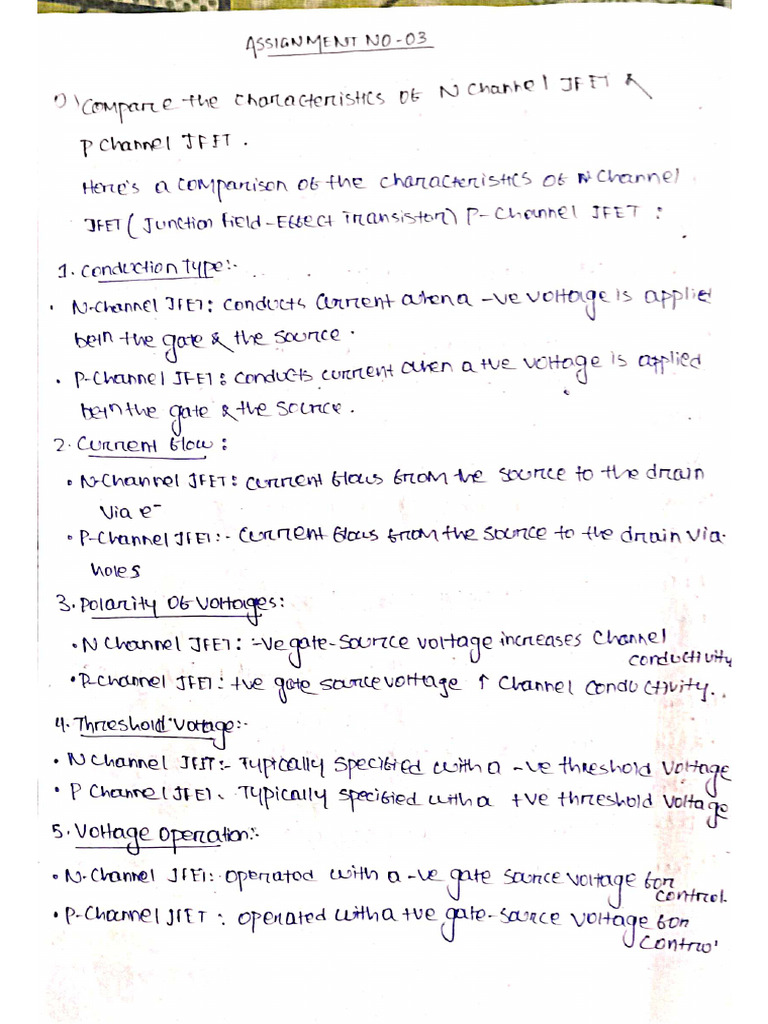 ASSIGNMENT NO-03
1) Compare the characteristics of N Channel JFET &
P Channel JFET.
Here's a comparison of the characteristics of N Channel
JFET (Junction Field-Effect Transistor) P-Channel JFET :
1. Conduction Type:-
• N-Channel JFET: conducts current when a -ve voltage is applied
betn the gate & the source.
• P-Channel JFET: conducts current when a +ve voltage is applied
betn the gate & the source.
2. Current flow:
• N-Channel JFET: current flows from the source to the drain
via e-
• P-Channel JFET:- current flows from the source to the drain via
holes
3. Polarity of voltages:
• N Channel JFET: -ve gate-source voltage increases channel
conductivity
• P-Channel JFET: +ve gate source voltage ↑ channel conductivity.
4. Threshold Voltage:-
• N Channel JFET:- Typically specified with a -ve threshold voltage
• P Channel JFET. Typically specified with a +ve threshold voltage
5. Voltage Operation:-
• N-Channel JFET: operated with a -ve gate source voltage for
control.
• P-Channel JFET : operated with a +ve gate-source voltage for
control